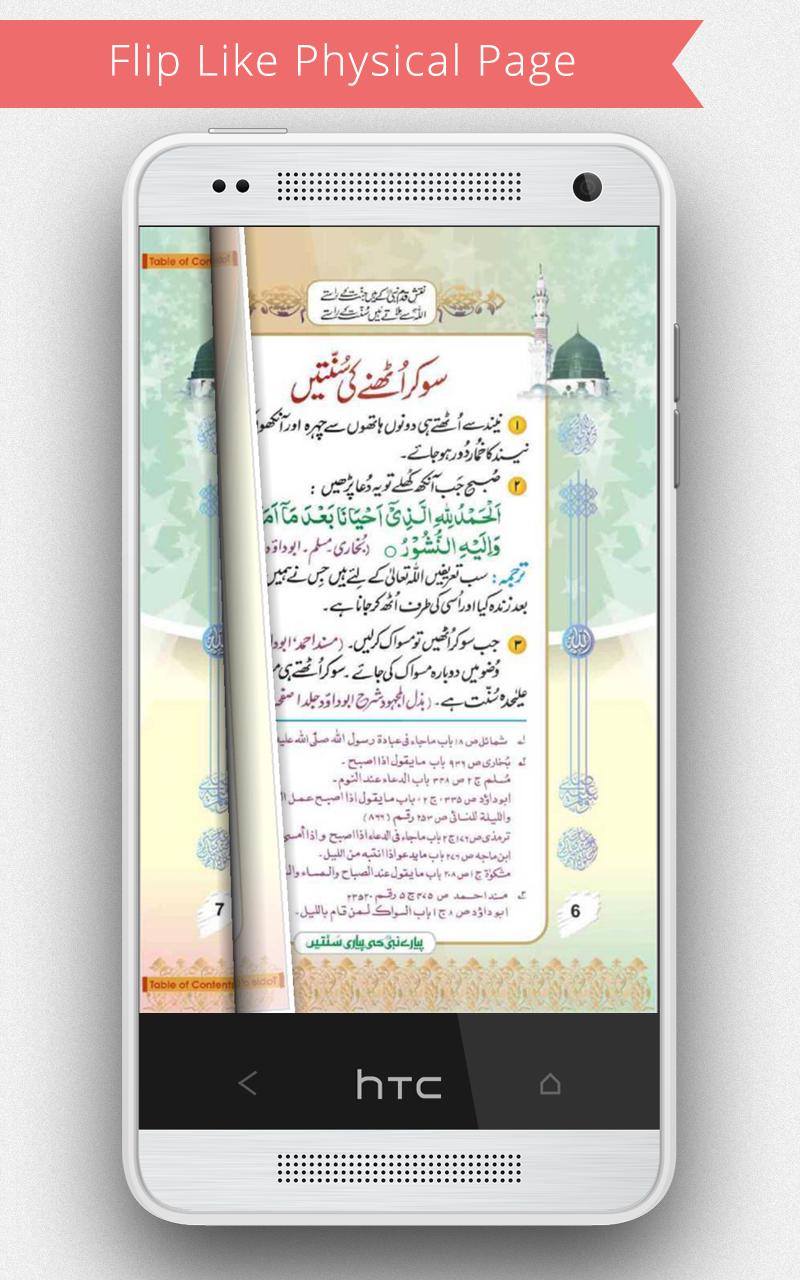 Flip Like Physical Page
Table of Con
نقش قدم نبی کے ہیں جنت کے راستے
اللہ سے ملاتے ہیں سنت کے راستے
سو کر اُٹھنے کی سُنّتیں
۱ نیند سے اُٹھتے ہی دونوں ہاتھوں سے چہرہ اور آنکھوں
نیند کا خُمار دُور ہو جائے۔
۲ صُبح جَب آنکھ کُھلے تو یہ دُعا پڑھیں :
اَلْحَمْدُ لِلّٰهِ الَّذِیْۤ اَحْیَانَا بَعْدَ مَاۤ اَمَا
وَاِلَیْهِ النُّشُوْرُ ○ (بُخاری۔ مسلم۔ ابوداؤد
ترجمہ: سب تعریفیں اللہ تعالیٰ کے لئے ہیں جس نے ہمیں
بعد زندہ کیا اور اُسی کی طرف اُٹھ کر جانا ہے۔
۳ جب سو کر اُٹھیں تو مسواک کرلیں۔ (مسند احمد، ابوداؤ
وُضو میں دوبارہ مسواک کی جائے۔ سو کر اُٹھتے ہی م
علیٰحدہ سُنّت ہے۔ (بذل المجہود شرح ابوداؤد جلد ۱ صفحہ
لـ شمائل ص ۱۸ باب ماجاء فی عبادة رسول الله صلّی الله علیه
لـ بُخاری ص ۹۳۶ باب مایقول اذا اصبح۔
مُسلم ج ۲ ص ۳۴۸ باب الدعاء عند النوم۔
ابوداؤد ص ۳۳۵ ج ۲ باب مایقول اذا اصبح عمل ال
واللیلة للنسائی ص ۲۵۳ رقم (۸۶۶)
ترمذی ص ۱۷۶ ج ۲ باب ماجاء فی الدعاء اذا اصبح و اذا أمسی
ابن ماجه ص ۲۷۶ باب مایدعو اذا انتبه من اللیل۔
مشکوٰة ج ۱ ص ۲۰۸ باب مایقول عند الصباح والمساء وال
ےـ مسند احمد ص ۳۷۵ ج ۵ رقم ۲۳۵۲۰
ابوداؤد ص ۸ ج ۱ باب السواک لمن قام باللیل۔
7
6
پیارے نبی کی پیاری سنتیں
Table of Contents
htc